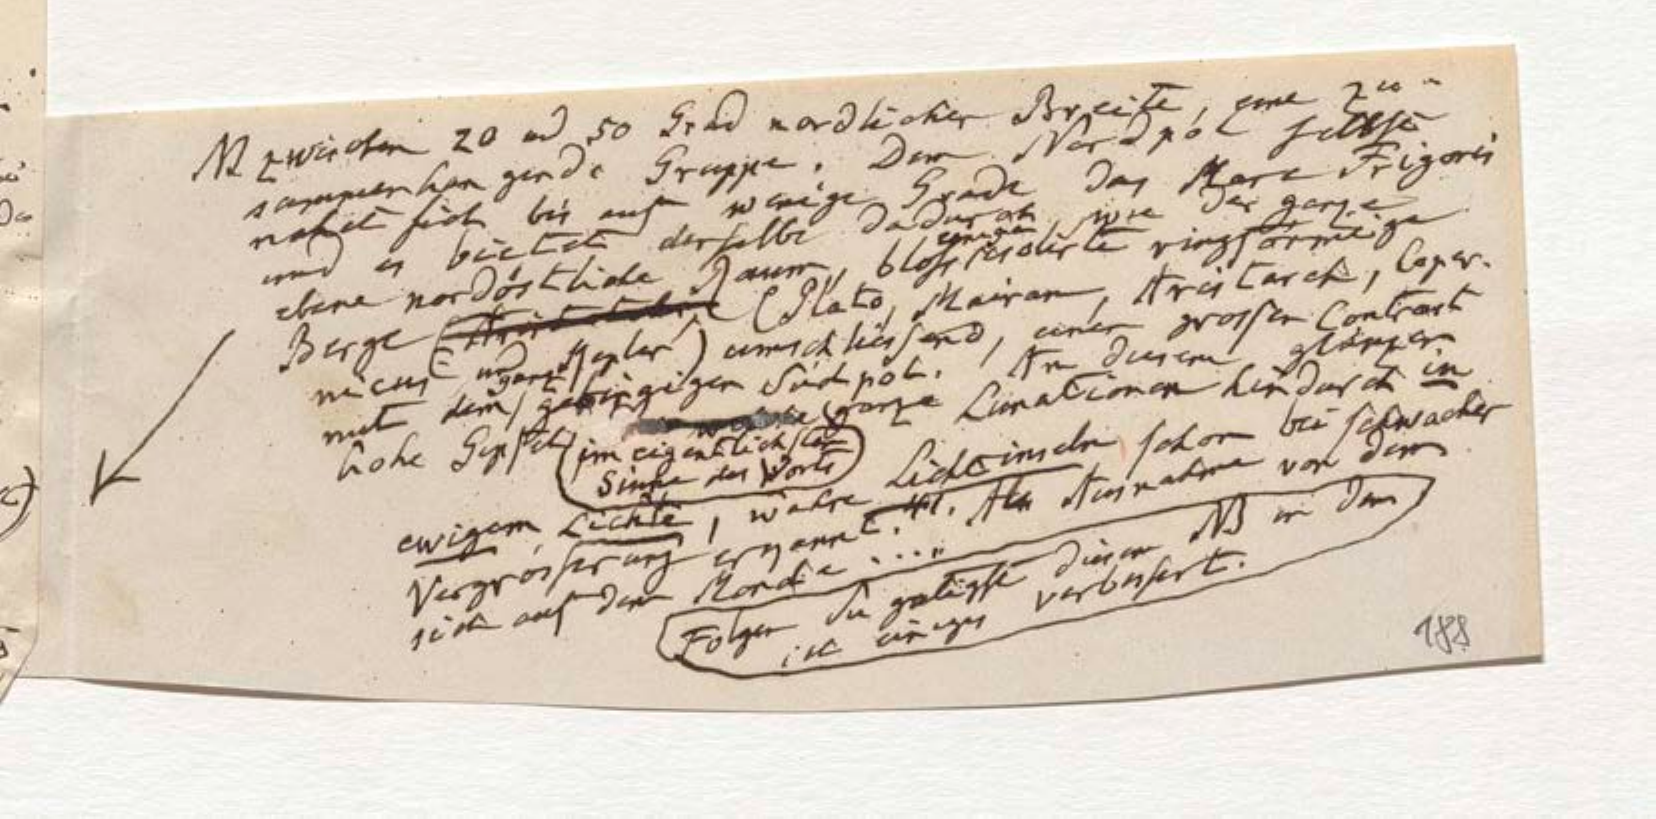 NB zwischen 20 und 50 Grad nordlicher Breite, eine zu=
sammenhangende Gruppe. Dem Nordpol selbst
nahet sich bis auf wenige Grade das Mare Frigoris
und es bietet derselbe dadurch, wie der ganze
ebene nordöstliche Raum, bloss einige isolirte ringförmige
Berge (Plato, Mairan, Aristarch, Coper-
nicus und Kepler) umschliessend, einen grossen Contrast
mit dem ganz gebirgigen Südpol. An diesem glänzen
hohe Gipfel ganze Lunationen hindurch in
(im eigentlichsten
Sinne des Worts)
ewigem Lichte, wahre Lichtinseln schon bei schwacher
Vergrösserung erkannt. Als Ausnahme von dem
sich auf dem Monde ....
Folgen Sie gütigst diesem NB in dem
ich einiges verbessert.
188